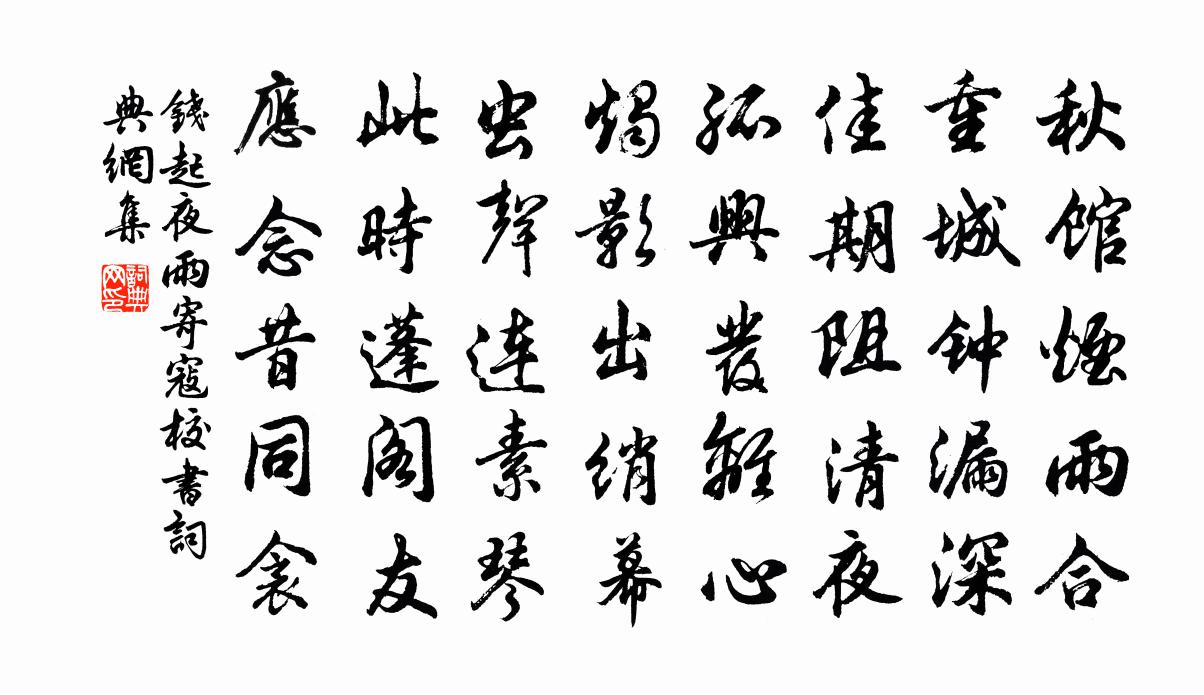 秋馆煙雨合
重城钟漏深
佳期阻清夜
孤興發離心
燭影出绡幕
虫聲连素琴
此時蓬阁友
應念昔同衾
錢起夜雨寄寇校書詞
典網集
詞典
网印